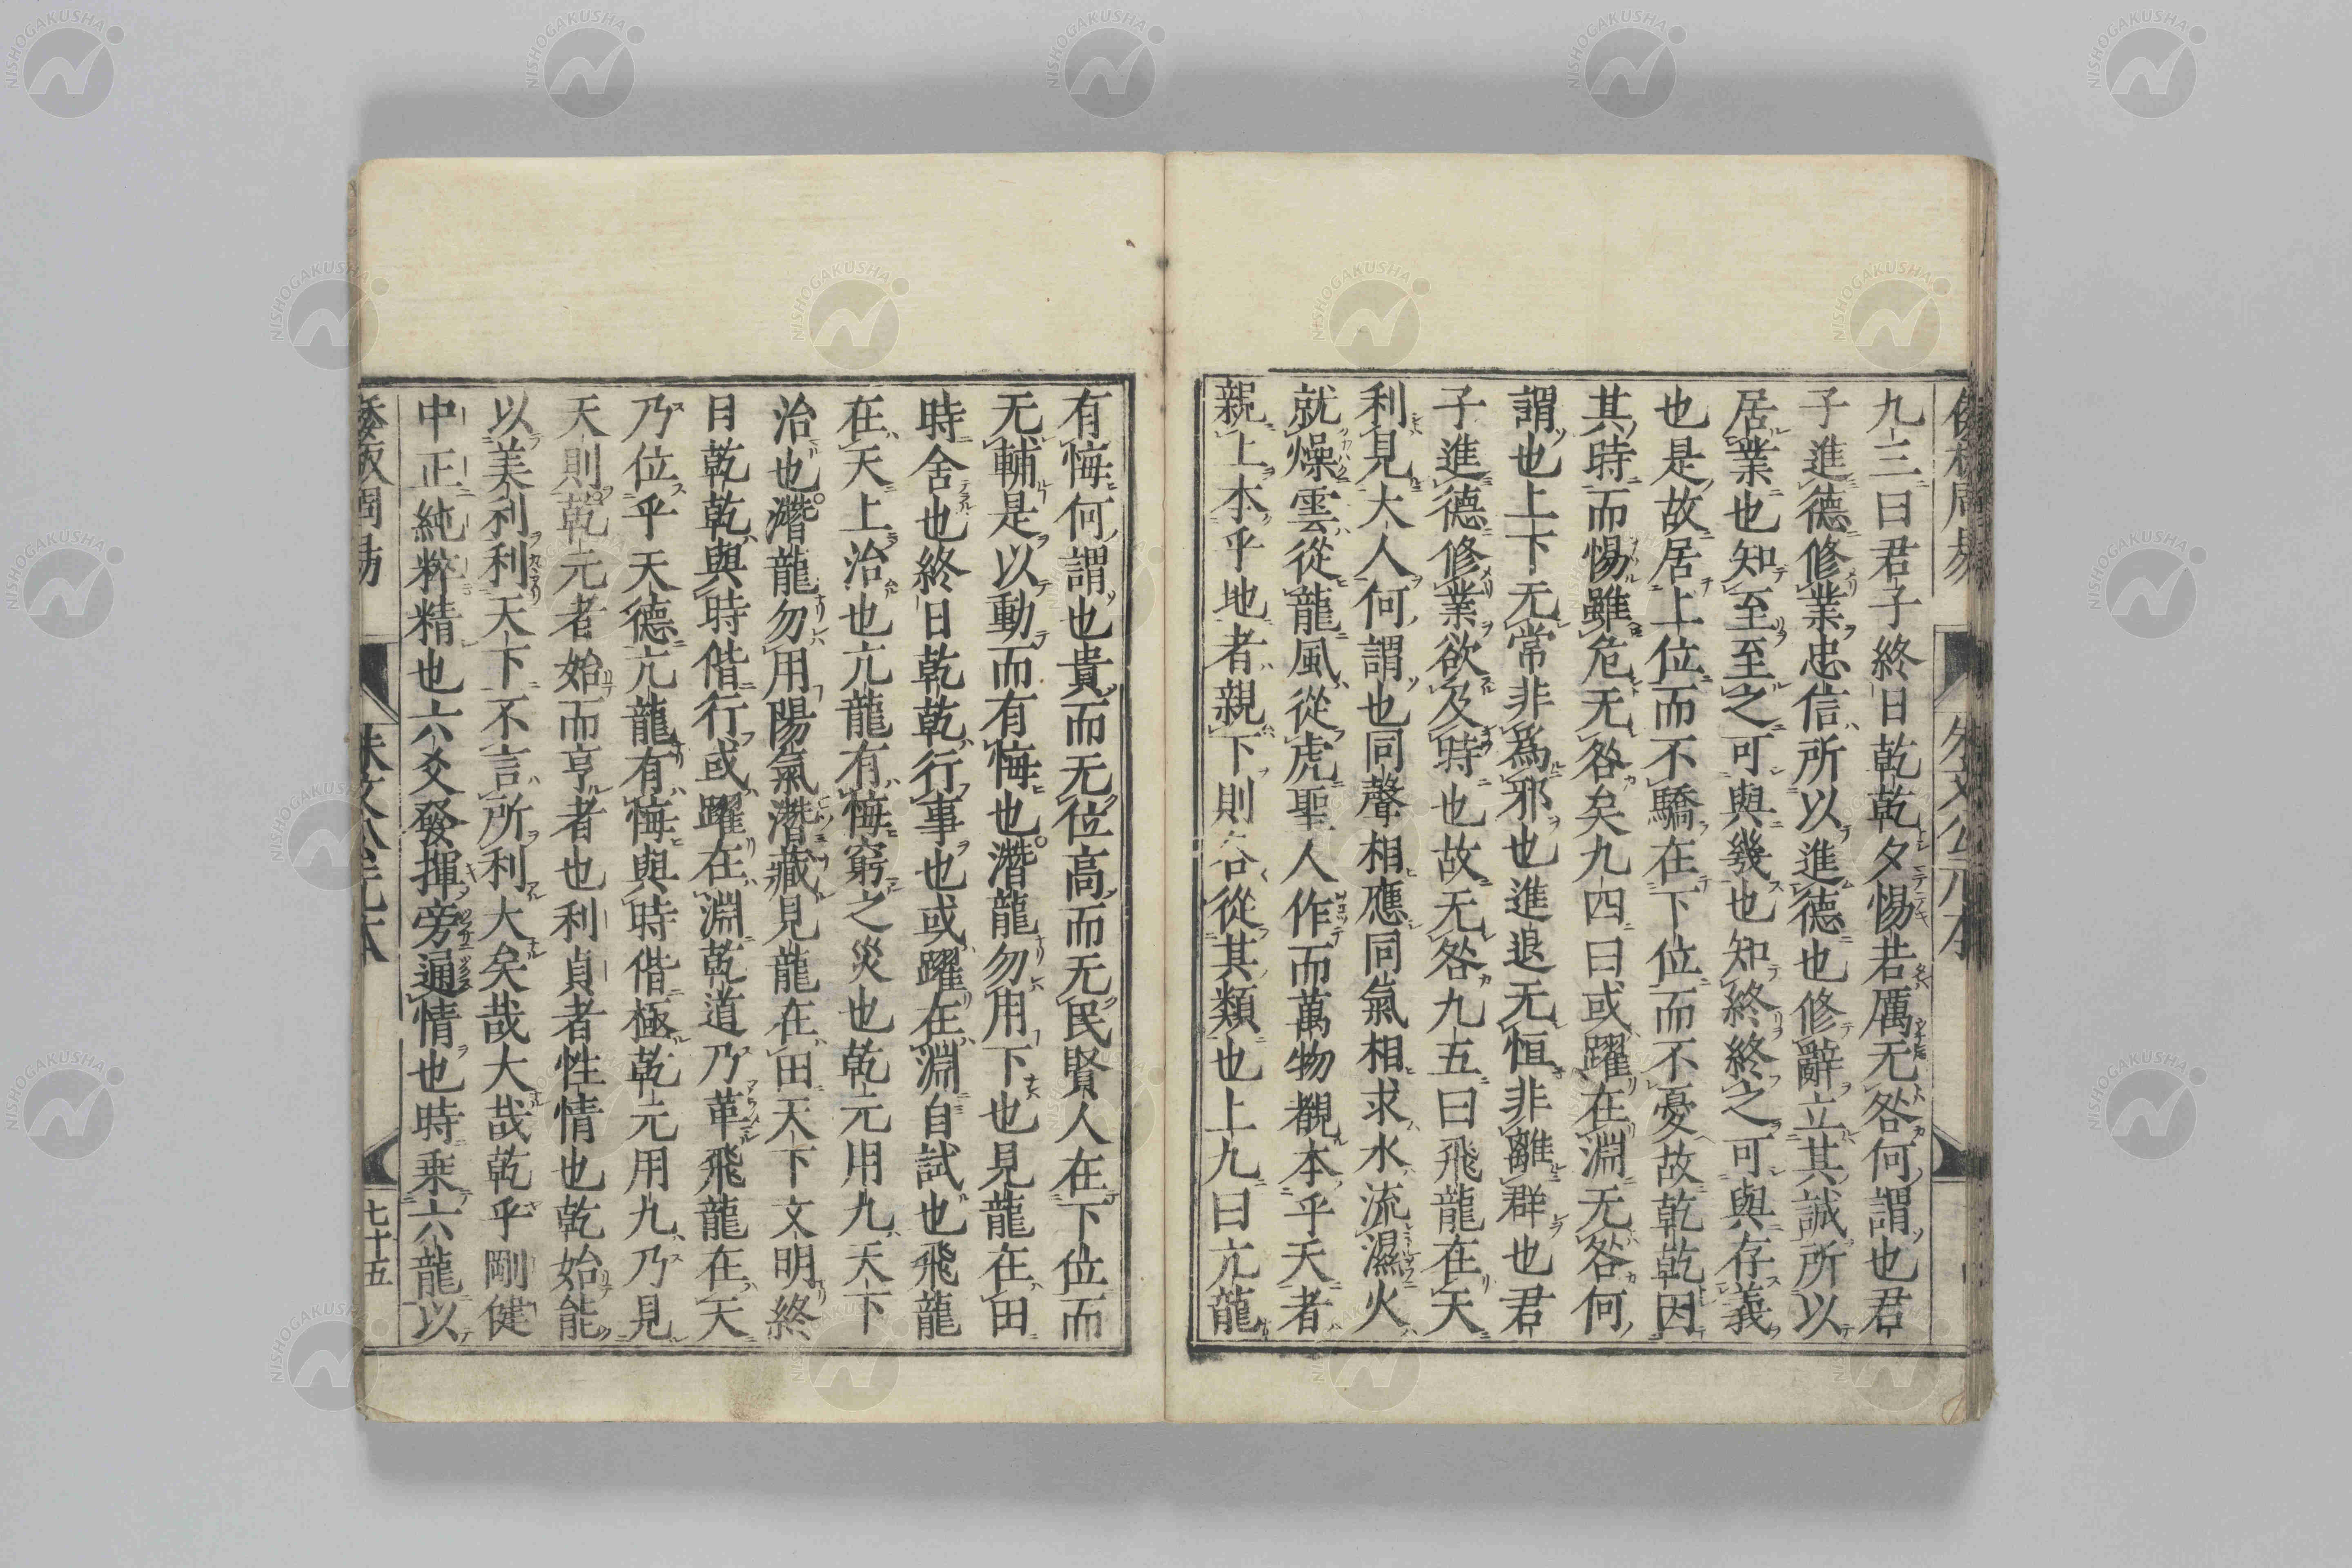 九三曰君子終日乾乾夕惕若厲无咎何謂也君
子進德修業忠信所以進德也修辭立其誠所以
居業也知至至之可與幾也知終終之可與存義
也是故居上位而不驕在下位而不憂故乾乾因
其時而惕雖危无咎矣九四曰或躍在淵无咎何
謂也上下无常非為邪也進退无恒非離群也君
子進德修業欲及時也故无咎九五曰飛龍在天
利見大人何謂也同聲相應同氣相求水流濕火
就燥雲從龍風從虎聖人作而萬物覩本乎天者
親上本乎地者親下則各從其類也上九曰亢龍
有悔何謂也貴而无位高而无民賢人在下位而
无輔是以動而有悔也潛龍勿用下也見龍在田
時舍也終日乾乾行事也或躍在淵自試也飛龍
在天上治也亢龍有悔窮之災也乾元用九天下
治也潛龍勿用陽氣潛藏見龍在田天下文明終
日乾乾與時偕行或躍在淵乾道乃革飛龍在天
乃位乎天德亢龍有悔與時偕極乾元用九乃見
天則乾元者始而亨者也利貞者性情也乾始能
以美利利天下不言所利大矣哉大哉乾乎剛健
中正純粹精也六爻發揮旁通情也時乗六龍以
七十五
NISHOGAKUSHA